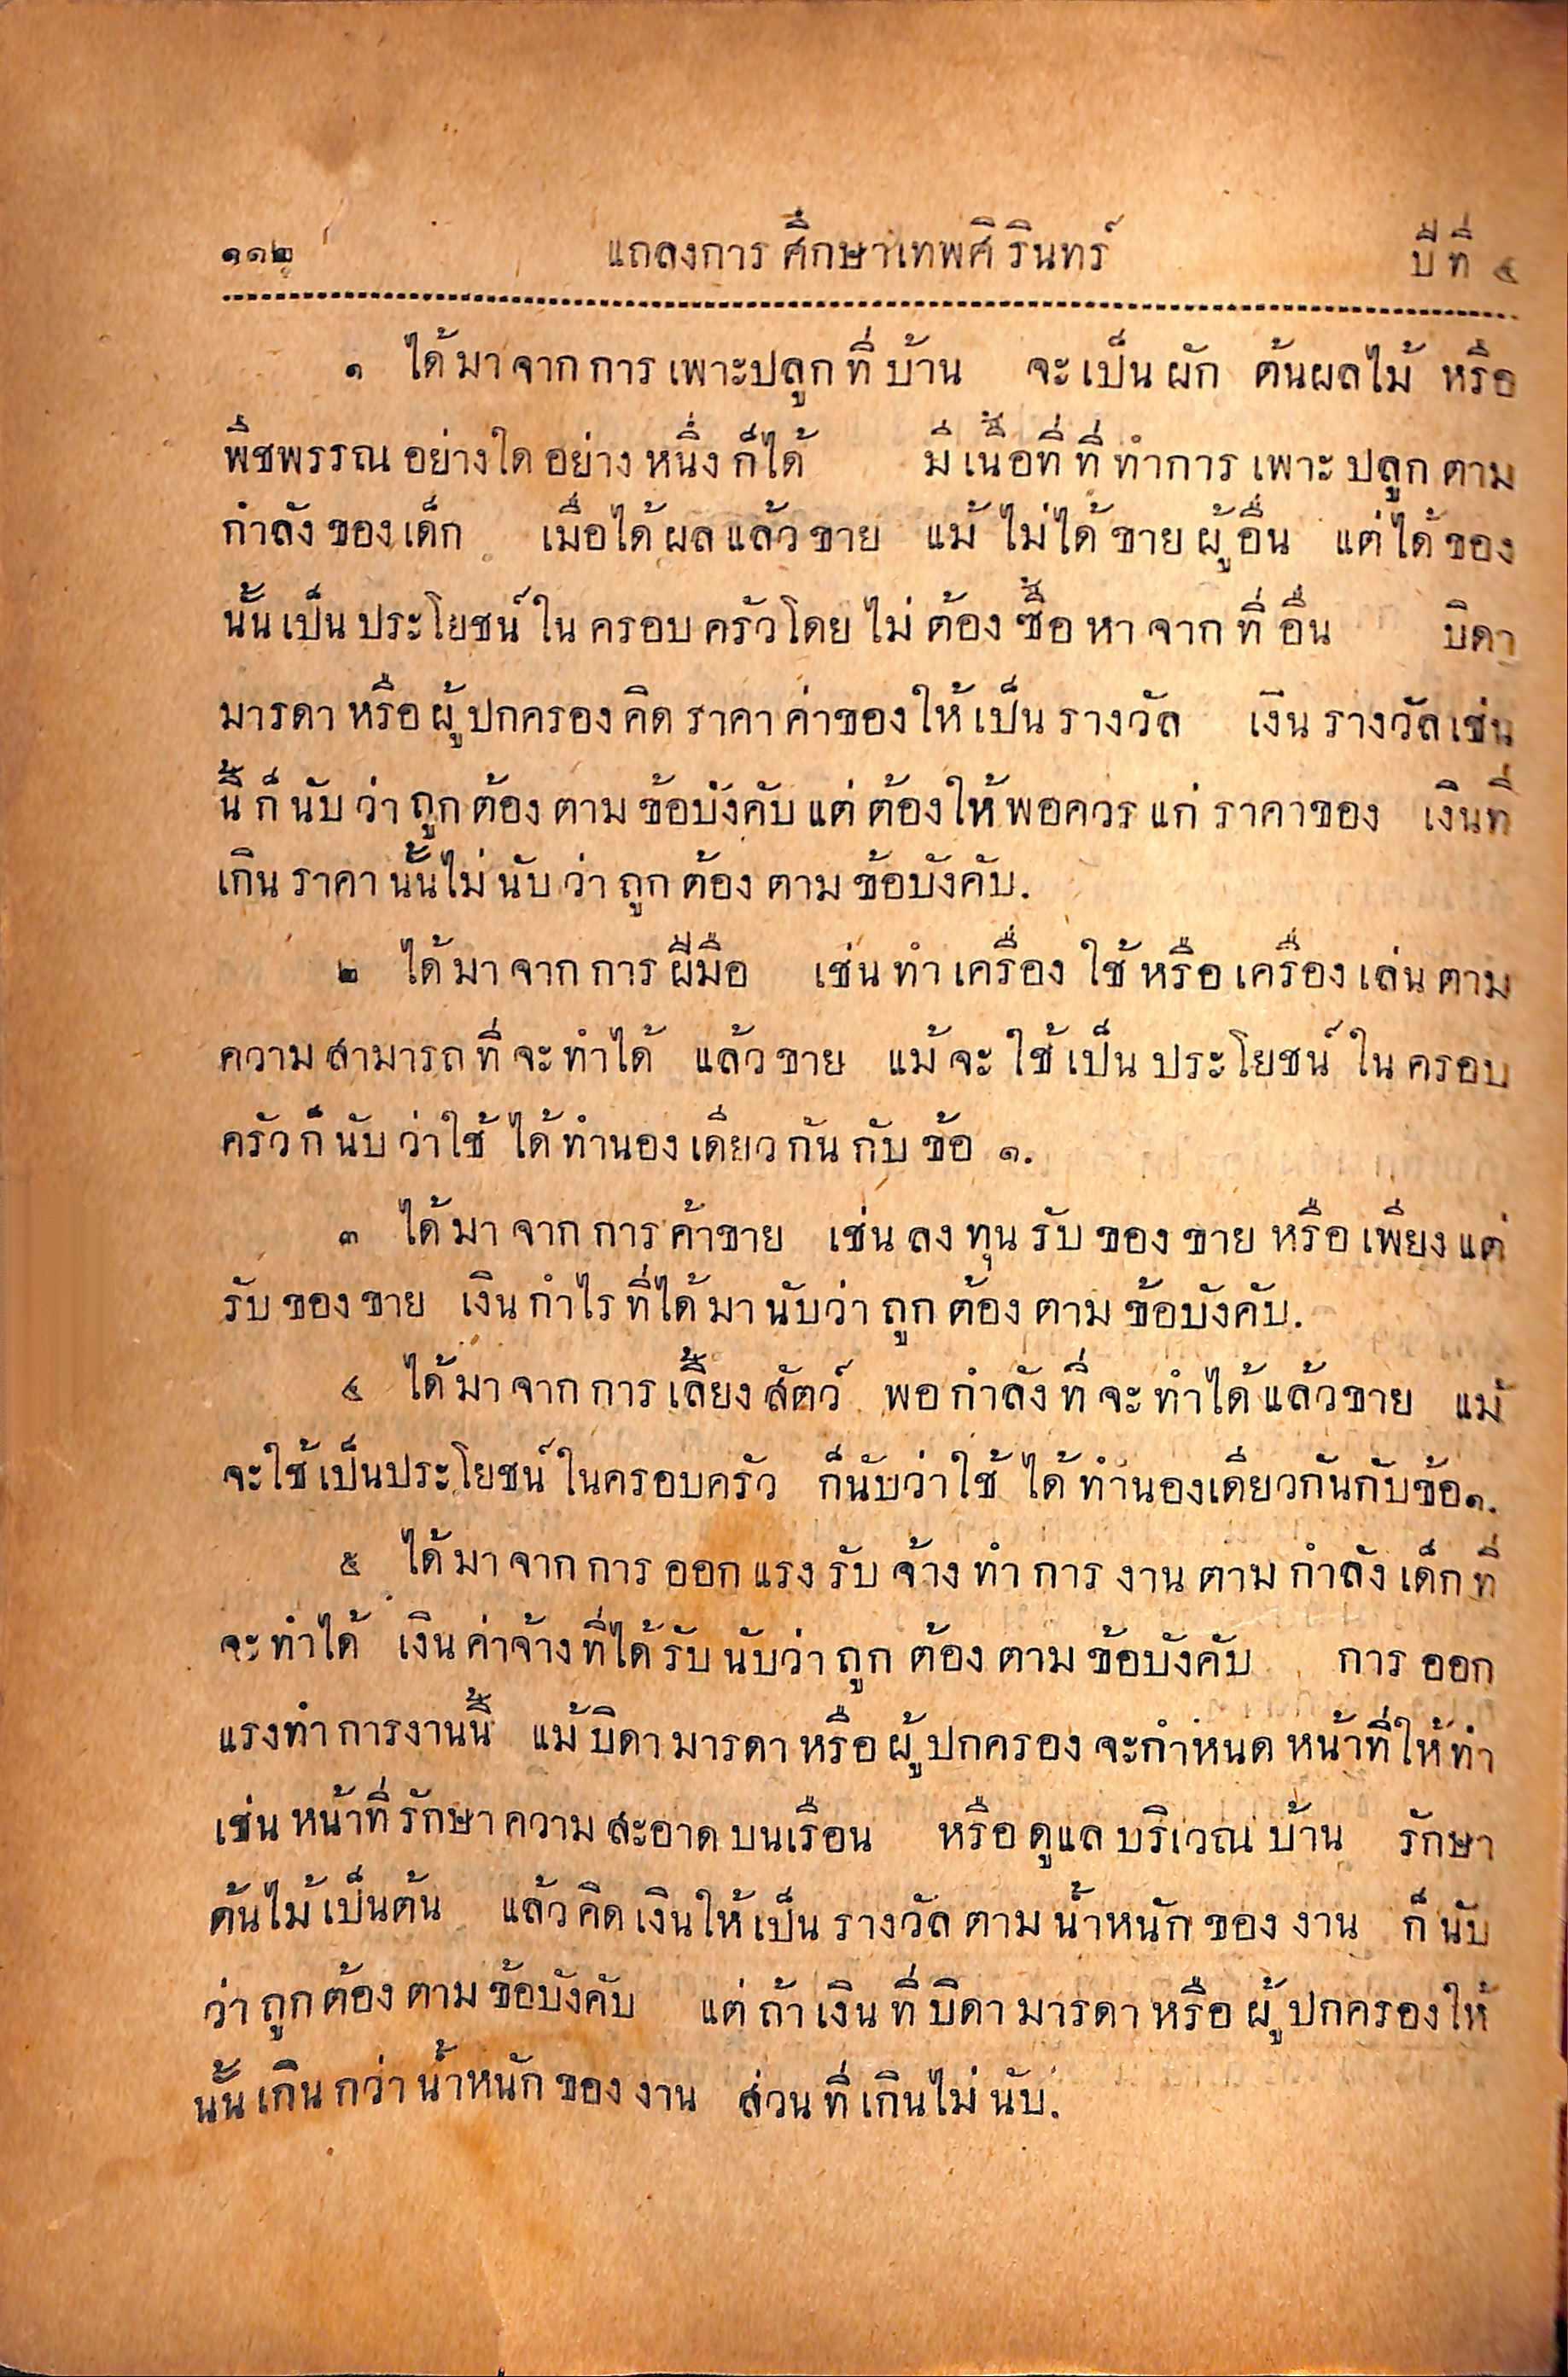 ๑๑๒ แถลงการศึกษาเทพศิรินทร์ ปีที่ ๕
๑ ได้มาจากการเพาะปลูกที่บ้าน จะเป็นผัก ต้นผลไม้ หรือ
พืชพรรณอย่างใดอย่างหนึ่งก็ได้ มีเนื้อที่ที่ทำการเพาะปลูกตาม
กำลังของเด็ก เมื่อได้ผลแล้วขาย แม้ไม่ได้ขายผู้อื่น แต่ได้ของ
นั้นเป็นประโยชน์ในครอบครัวโดยไม่ต้องซื้อหาจากที่อื่น บิดา
มารดาหรือผู้ปกครองคิดราคาค่าของให้เป็นรางวัล เงินรางวัลเช่น
นี้ก็นับว่าถูกต้องตามข้อบังคับแต่ต้องให้พอควรแก่ราคาของ เงินที่
เกินราคานั้นไม่นับว่าถูกต้องตามข้อบังคับ.
๒ ได้มาจากการฝีมือ เช่นทำเครื่องใช้หรือเครื่องเล่นตาม
ความสามารถที่จะทำได้ แล้วขาย แม้จะใช้เป็นประโยชน์ในครอบ
ครัวก็นับว่าใช้ได้ทำนองเดียวกันกับข้อ ๑.
๓ ได้มาจากการค้าขาย เช่นลงทุนรับของขายหรือเพียงแต่
รับของขาย เงินกำไรที่ได้มานับว่าถูกต้องตามข้อบังคับ.
๔ ได้มาจากการเลี้ยงสัตว์ พอกำลังที่จะทำได้แล้วขาย แม้
จะใช้เป็นประโยชน์ในครอบครัว ก็นับว่าใช้ได้ทำนองเดียวกันกับข้อ๑.
๕ ได้มาจากการออกแรงรับจ้างทำการงานตามกำลังเด็กที่
จะทำได้ เงินค่าจ้างที่ได้รับนับว่าถูกต้องตามข้อบังคับ การออก
แรงทำการงานนี้ แม้บิดามารดาหรือผู้ปกครองจะกำหนดหน้าที่ให้ทำ
เช่นหน้าที่รักษาความสะอาดบนเรือน หรือดูแลบริเวณบ้าน รักษา
ต้นไม้เป็นต้น แล้วคิดเงินให้เป็นรางวัลตามน้ำหนักของงาน ก็นับ
ว่าถูกต้องตามข้อบังคับ แต่ถ้าเงินที่บิดามารดาหรือผู้ปกครองให้
นั้นเกินกว่าน้ำหนักของงาน ส่วนที่เกินไม่นับ.